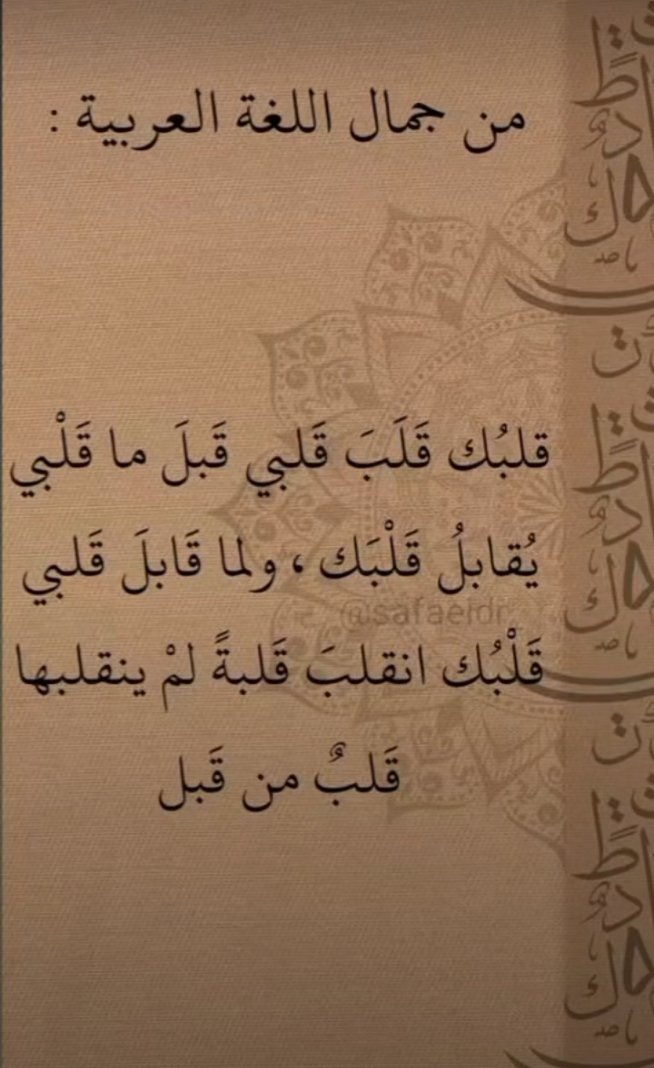 من جمال اللغة العربية :
قلبُك قَلَبَ قَلبي قَبلَ ما قَلْبي
يُقابلُ قَلْبَك ، ولما قَابلَ قَلبي
@safaeidr_
قَلْبُك انقلبَ قَلبةً لمْ ينقلبها
قَلبٌ من قَبل